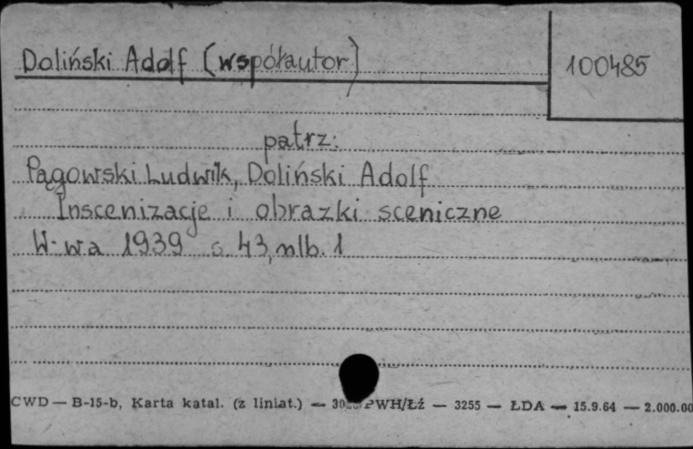 Doliński Adolf (współautor)
100485
patrz:
Pągowski Ludwik, Doliński Adolf
Inscenizacje i obrazki sceniczne
W-wa 1939 s. 43, nlb. 1
CWD — B-15-b, Karta katal. (z liniat.) — PWH/Łź — 3255 — ŁDA — 15.9.64 — 2.000.00